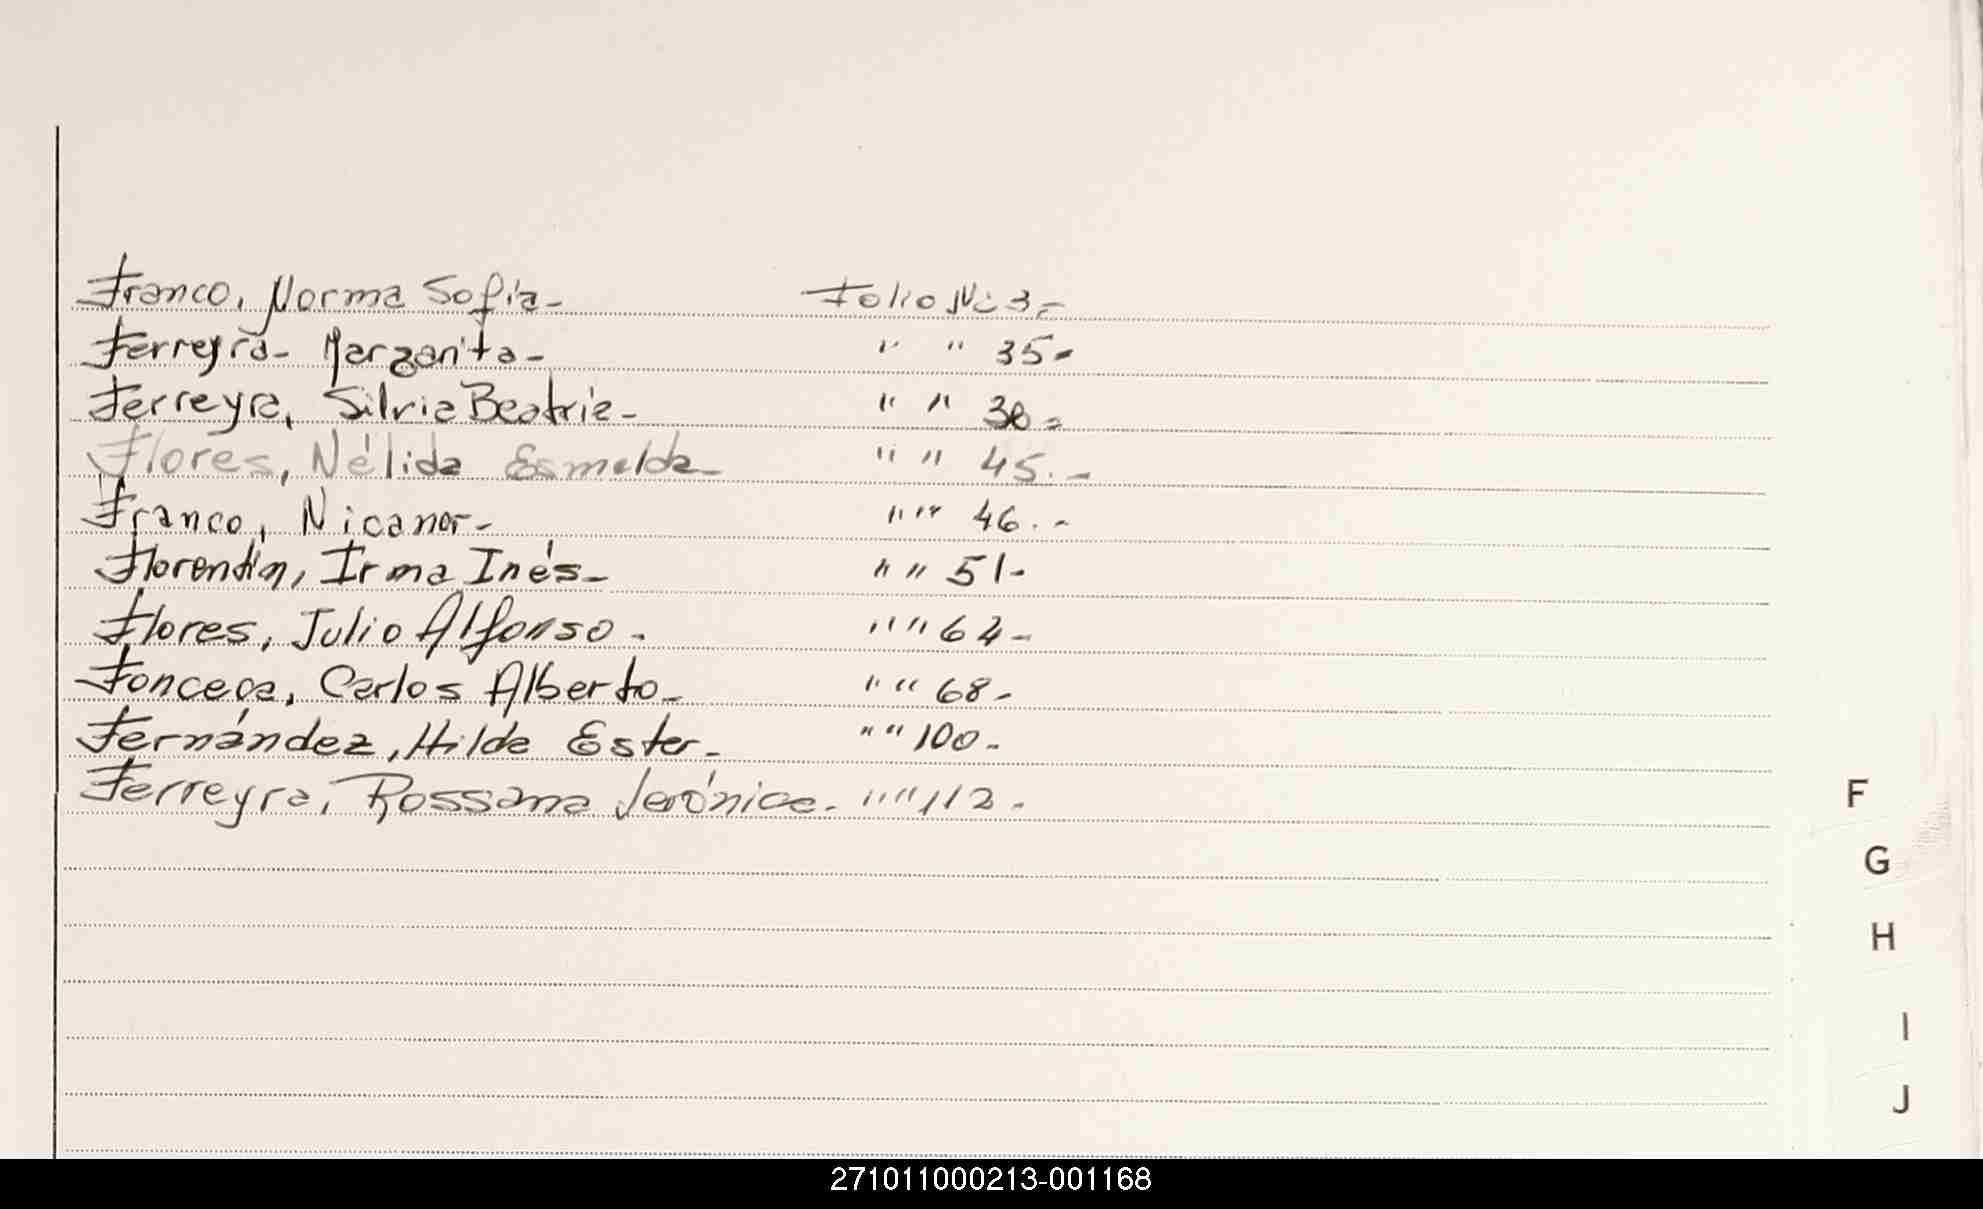 Franco, Norma Sofia- Folio Nº 3-
Ferreyra- Margarita- " " 35-
Ferreyra, Silvia Beatriz- " " 38-
Flores, Nélida Esmelda- " " 45.-
Franco, Nicanor- " " 46.-
Florendin, Irma Inés- " " 51-
Flores, Julio Alfonso. " " 64-
Fonceca, Carlos Alberto- " " 68-
Fernández, Hilda Ester- " " 100-
Ferreyra, Rossana Verónica- " " 112-
F
G
H
I
J
271011000213-001168